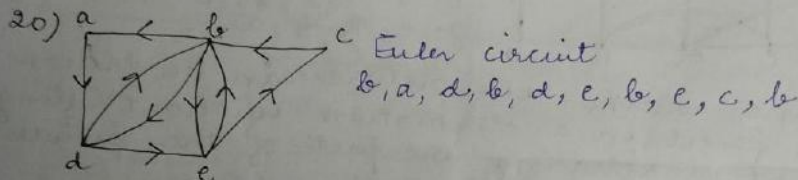 20)
a b c
Euler circuit
b, a, d, b, d, e, b, e, c, b
d e